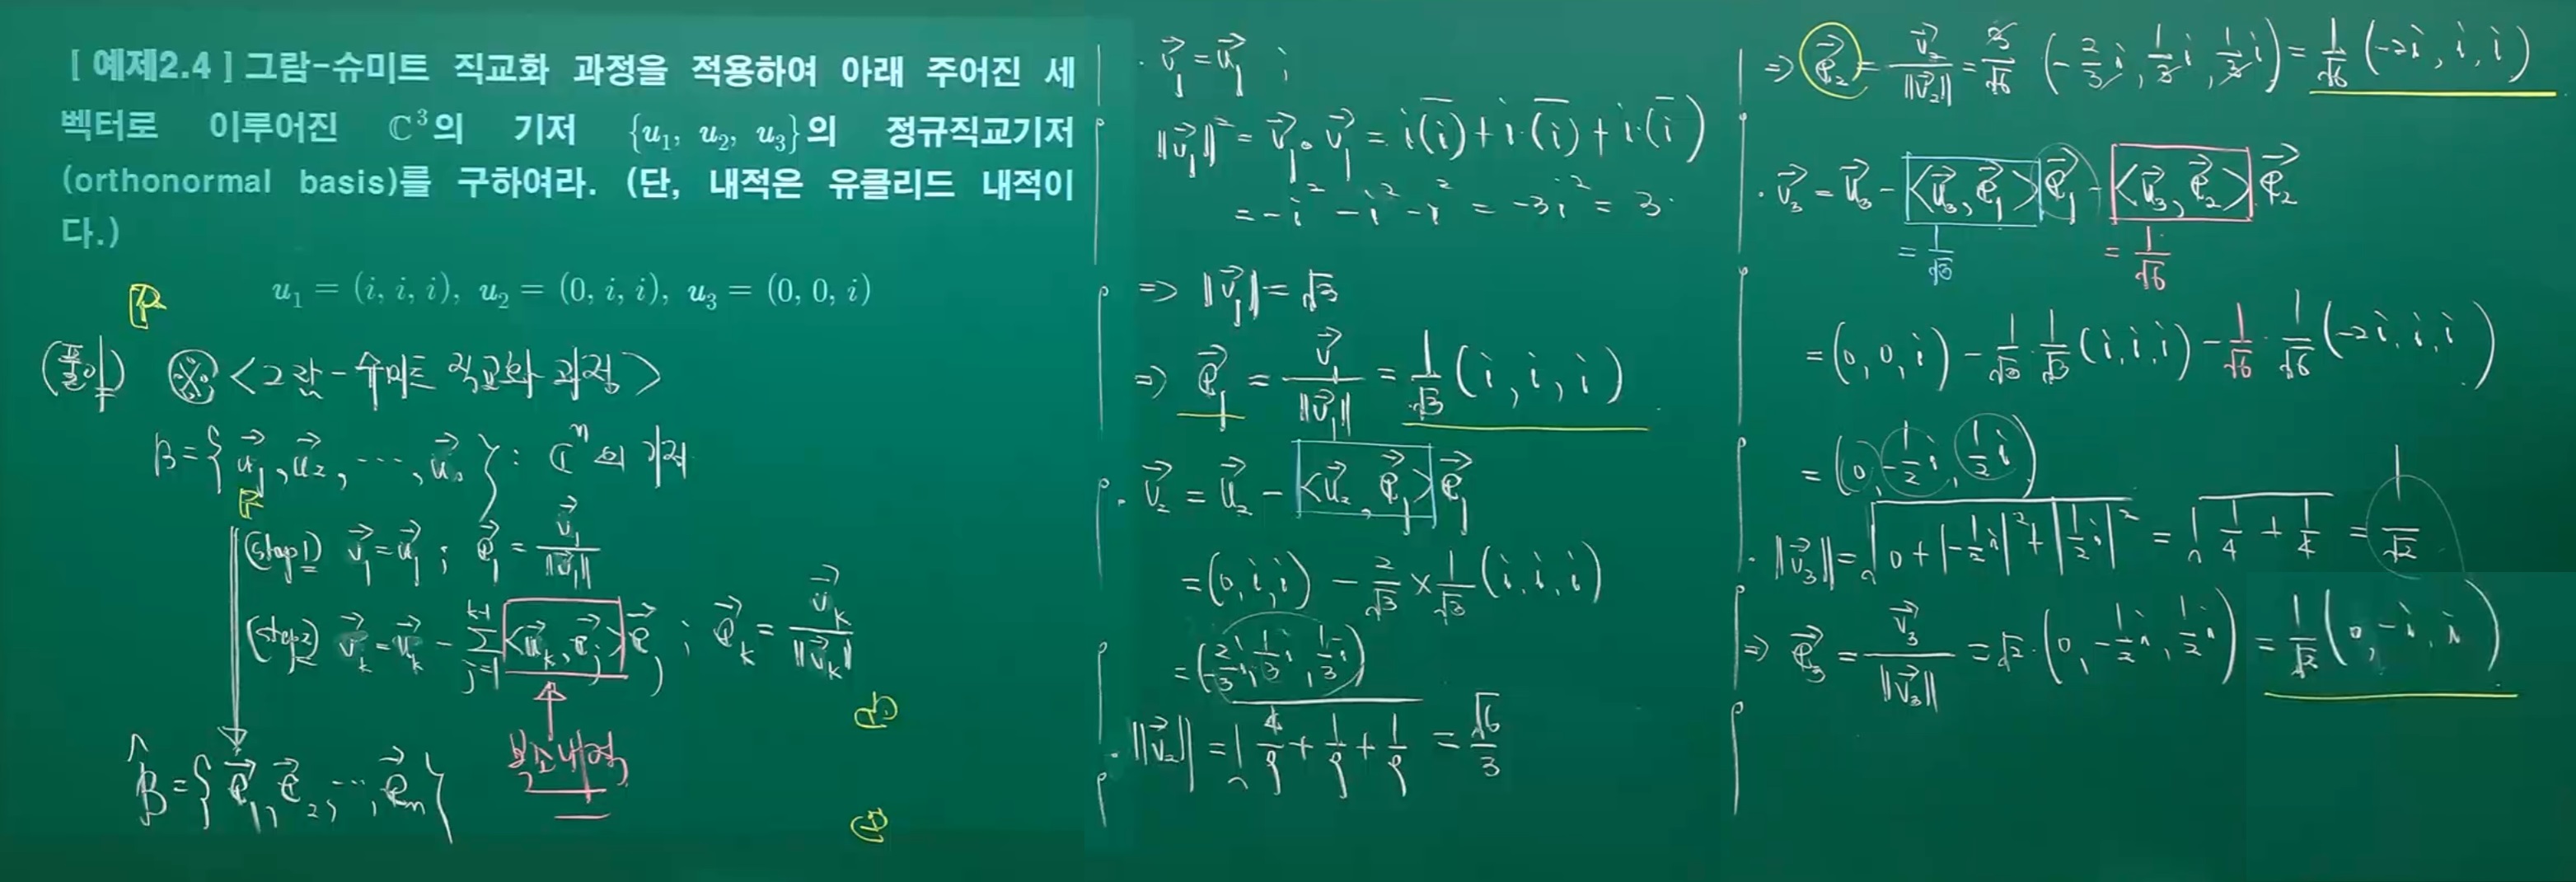 [ 예제2.4 ] 그람-슈미트 직교화 과정을 적용하여 아래 주어진 세
벡터로 이루어진 ℂ³의 기저 {u₁, u₂, u₃}의 정규직교기저
(orthonormal basis)를 구하여라. (단, 내적은 유클리드 내적이
다.)
u₁ = (i, i, i), u₂ = (0, i, i), u₃ = (0, 0, i)
(풀이) ※ <그람-슈미트 직교화 과정>
B = { u⃗₁, u⃗₂, ⋯, u⃗ₙ } : ℂⁿ의 기저
(step1) v⃗₁ = u⃗₁ ; e⃗₁ = v⃗₁/‖v⃗₁‖
(step2) v⃗ₖ = u⃗ₖ - Σ_{j=1}^{k-1} <u⃗ₖ, e⃗ⱼ> e⃗ⱼ ; e⃗ₖ = v⃗ₖ/‖v⃗ₖ‖
복소내적
B̂ = { e⃗₁, e⃗₂, ⋯, e⃗ₙ }
· v⃗₁ = u⃗₁ ;
‖v⃗₁‖² = v⃗₁ · v⃗₁ = i(i̅) + i·(i̅) + i·(i̅)
= -i² - i² - i² = -3i² = 3.
=> ‖v⃗₁‖ = √3
=> e⃗₁ = v⃗₁/‖v⃗₁‖ = 1/√3 (i, i, i)
· v⃗₂ = u⃗₂ - <u⃗₂, e⃗₁> e⃗₁
= (0, i, i) - 2/√3 × 1/√3 (i, i, i)
= (-2/3 i, 1/3 i, 1/3 i)
· ‖v⃗₂‖ = √(4/9 + 1/9 + 1/9) = √6/3
=> e⃗₂ = v⃗₂/‖v⃗₂‖ = 3/√6 (-2/3 i, 1/3 i, 1/3 i) = 1/√6 (-2i, i, i)
· v⃗₃ = u⃗₃ - <u⃗₃, e⃗₁> e⃗₁ - <u⃗₃, e⃗₂> e⃗₂
= 1/√3 = 1/√6
= (0, 0, i) - 1/√3 · 1/√3 (i, i, i) - 1/√6 · 1/√6 (-2i, i, i)
= (0, -1/2 i, 1/2 i)
· ‖v⃗₃‖ = √(0 + |-1/2 i|² + |1/2 i|²) = √(1/4 + 1/4) = 1/√2
=> e⃗₃ = v⃗₃/‖v⃗₃‖ = √2 · (0, -1/2 i, 1/2 i) = 1/√2 (0, -i, i)